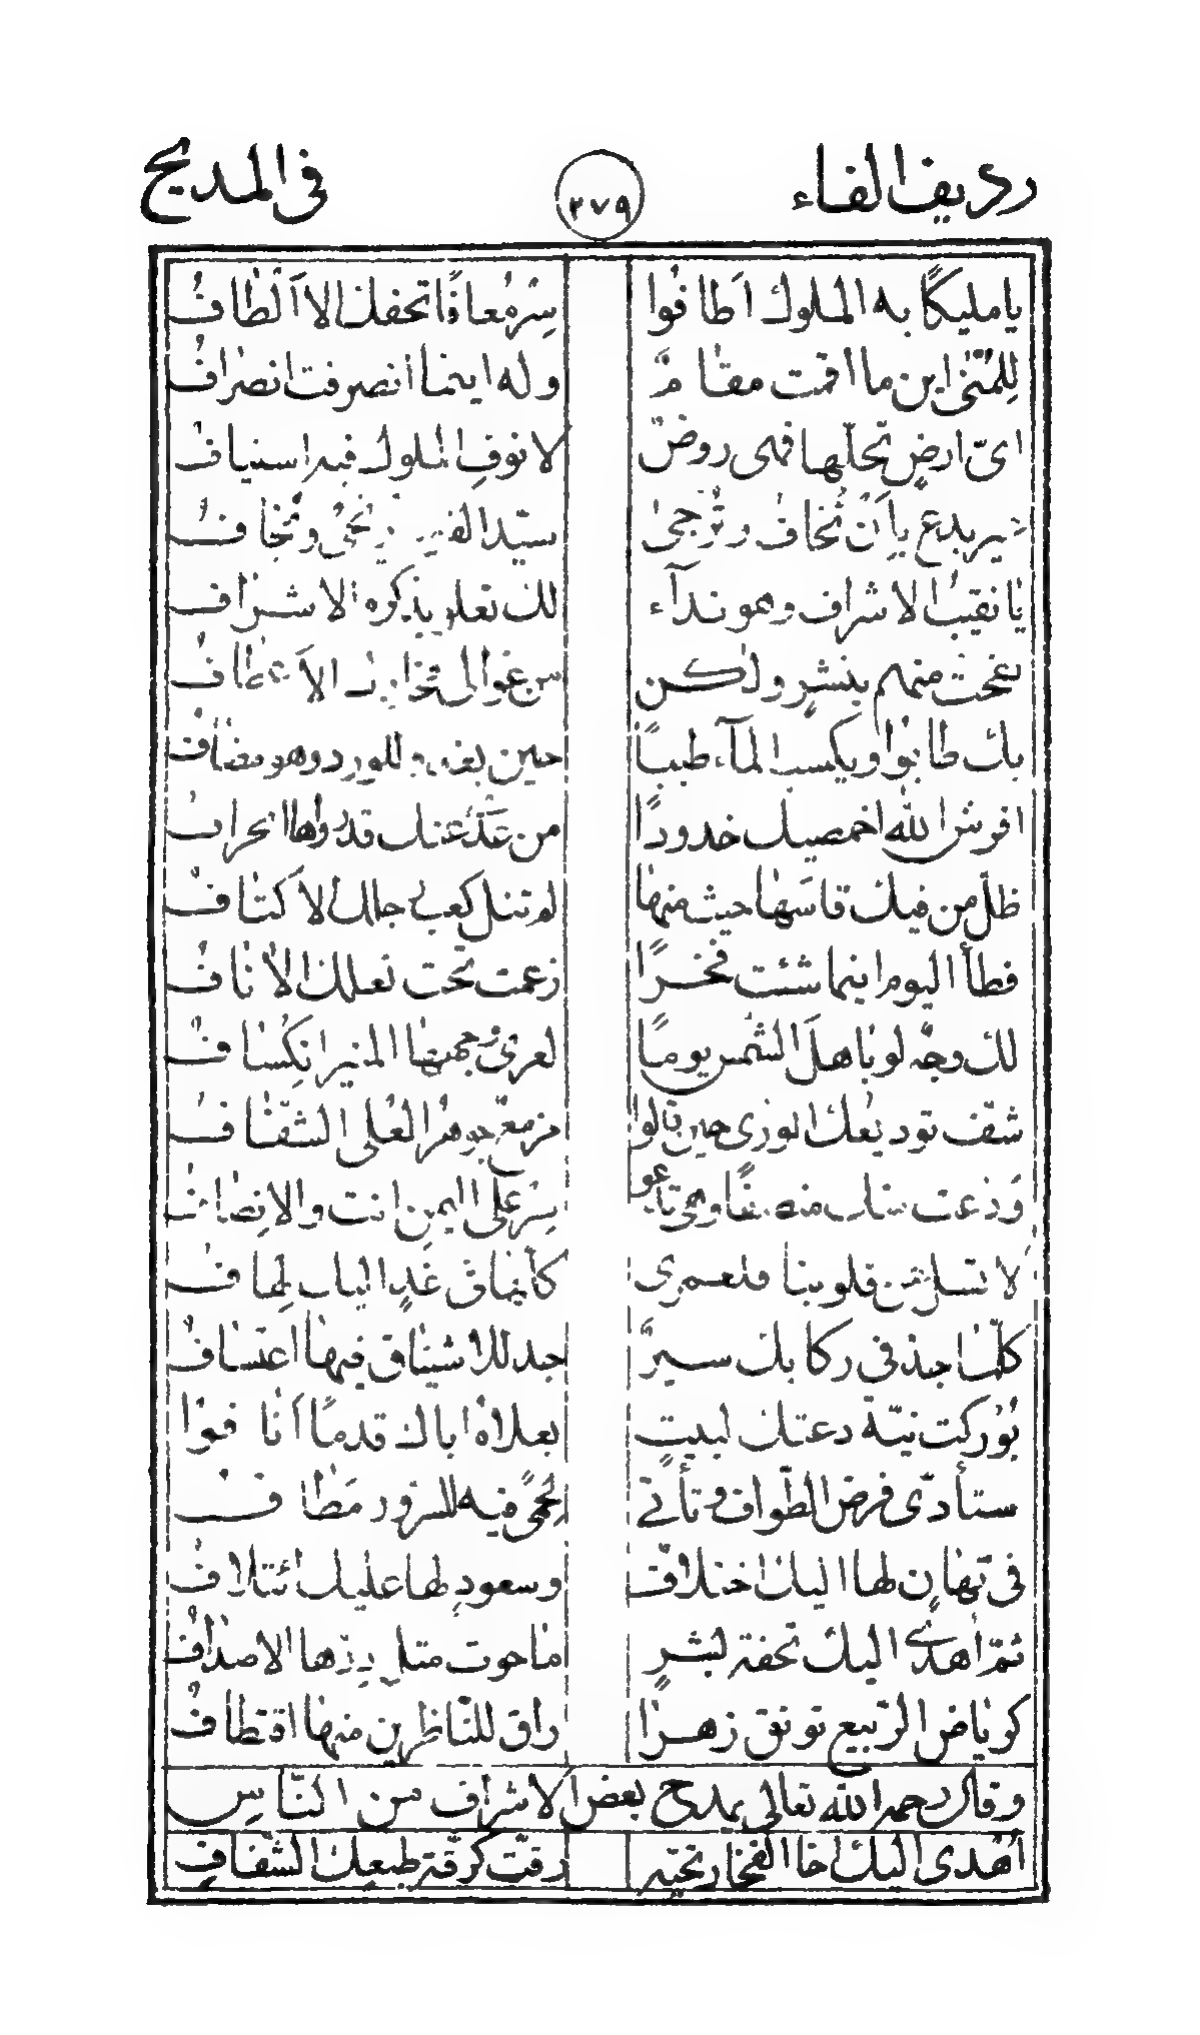 رديف الفاء ٢٧٩ في المديح
يا مليكًا به الملوك اَطافُوا سِرْ مُعافًا تحفك الاَ اَلْطافُ
لِلمُنى اين ما اقمت مقامٌ وله اينما انصرفت انصرافُ
اىّ ارضٍ تحلّها فهى روضٌ لا نوفِ الملوك فيه استيافُ
بدع بأن تُخافُ وتُرجىٰ سيّدا وتُخافُ
يا نقيبُ الاشراف وهو نداء لك تعلو بذكره الاشراف
نفحت منهم بنشرٍ ولكن الاَعطافُ
بك طابُوا ويكسب المآء طيبًا حين للورد وهو مضاف
افرش الله اخمصيك خدودًا من عَدَتْ عنك قدرُواها انحرافُ
ظلّ من فيك قاسَها حيث منها لم تنل كعب جالك الاَكتافُ
فطأ اليوم اينما شئت فخرًا زعمت تحت نعلك الاٰنافُ
لك وجهٌ لو باهلَ الشمس يومًا لعرى وجهها المنير انكِسافُ
شقّ توديعك الورى حين قالوا مزمعٌ جوهرُ العُلى الشفّافُ
وَدعت منك سِرْ على اليمن انت والانصاف
لا تسل عن قلوبنا فلعمرى كأنّها فى غدٍ اليك لِهافُ
كلّما جدّ فى ركابك سيرٌ جدّ للاشتياق فيها اعتسافُ
بُوركت نيّة دعتك لبيتٍ بعلاه اباك قدمًا اَنافُوا
ستأدّى فرض الطّواف وتأتى لحمًى فيه للزور مَطافُ
فى تهانٍ لها اليك اختلافٌ وسعودٍ لها عليك ائتلافُ
ثمّ أهدى اليك تحفة لبشرٍ ما حوت مثل درّها الاصدافُ
كرياض الربيع تونق زهرا راق للنّاظرين منها اقتطافُ
وقال رحمه الله تعالى يمدح بعض الاشراف من النّاس
أهدى اليك اخا الفخار تحيّه رقّت كرقّة طبعك الشفّافِ